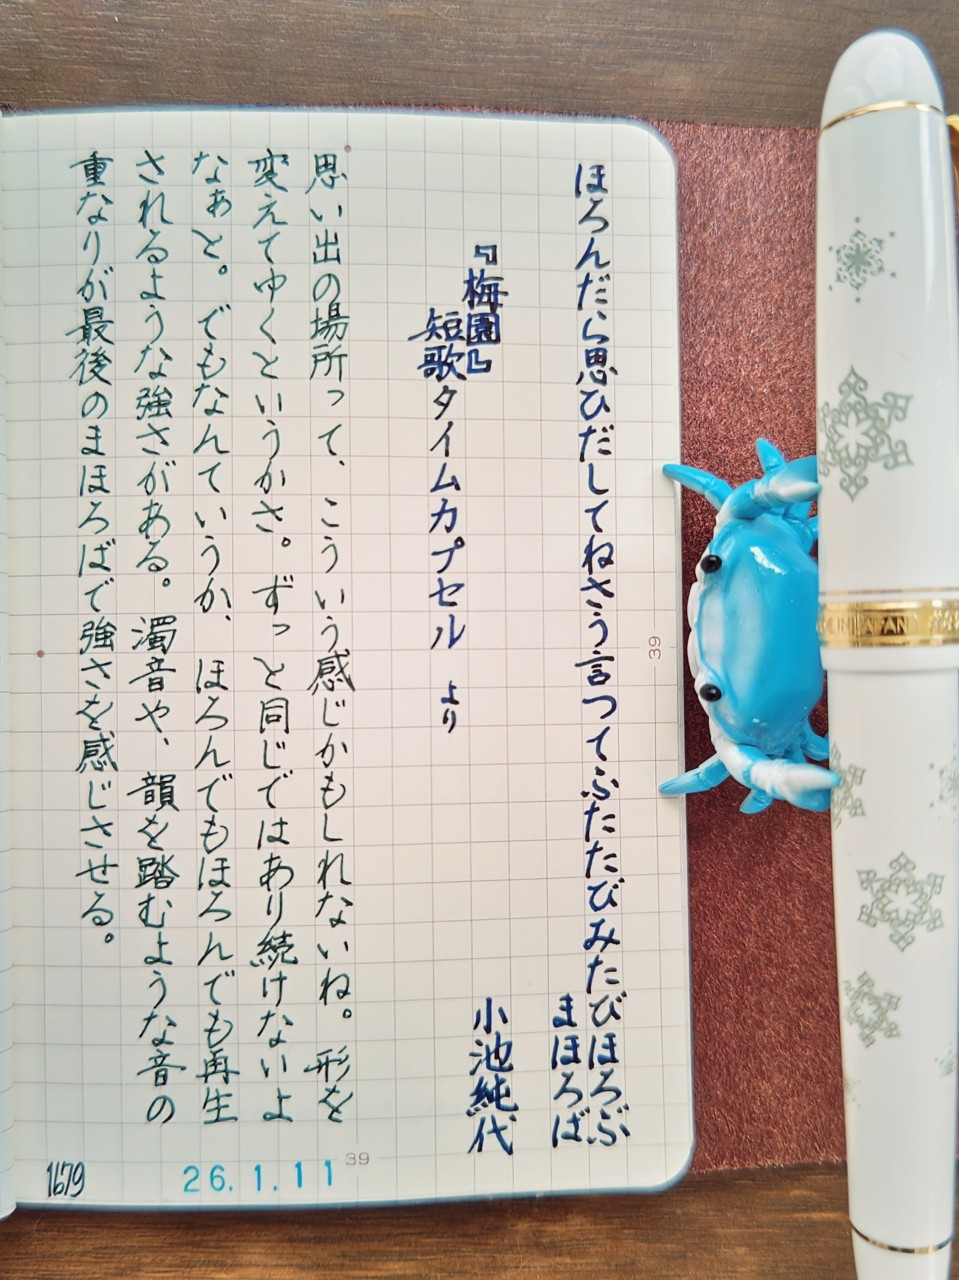 ほろんだら思ひだしてねさう言つてふたたびみたびほろぶ
まほろば
『梅園』
小池純代
短歌タイムカプセル より
思い出の場所って、こういう感じかもしれないね。形を
変えてゆくというかさ。ずっと同じではあり続けないよ
なぁと。でもなんていうか、ほろんでもほろんでも再生
されるような強さがある。濁音や、韻を踏むような音の
重なりが最後のまほろばで強さを感じさせる。
39
39
26.1.11
1679